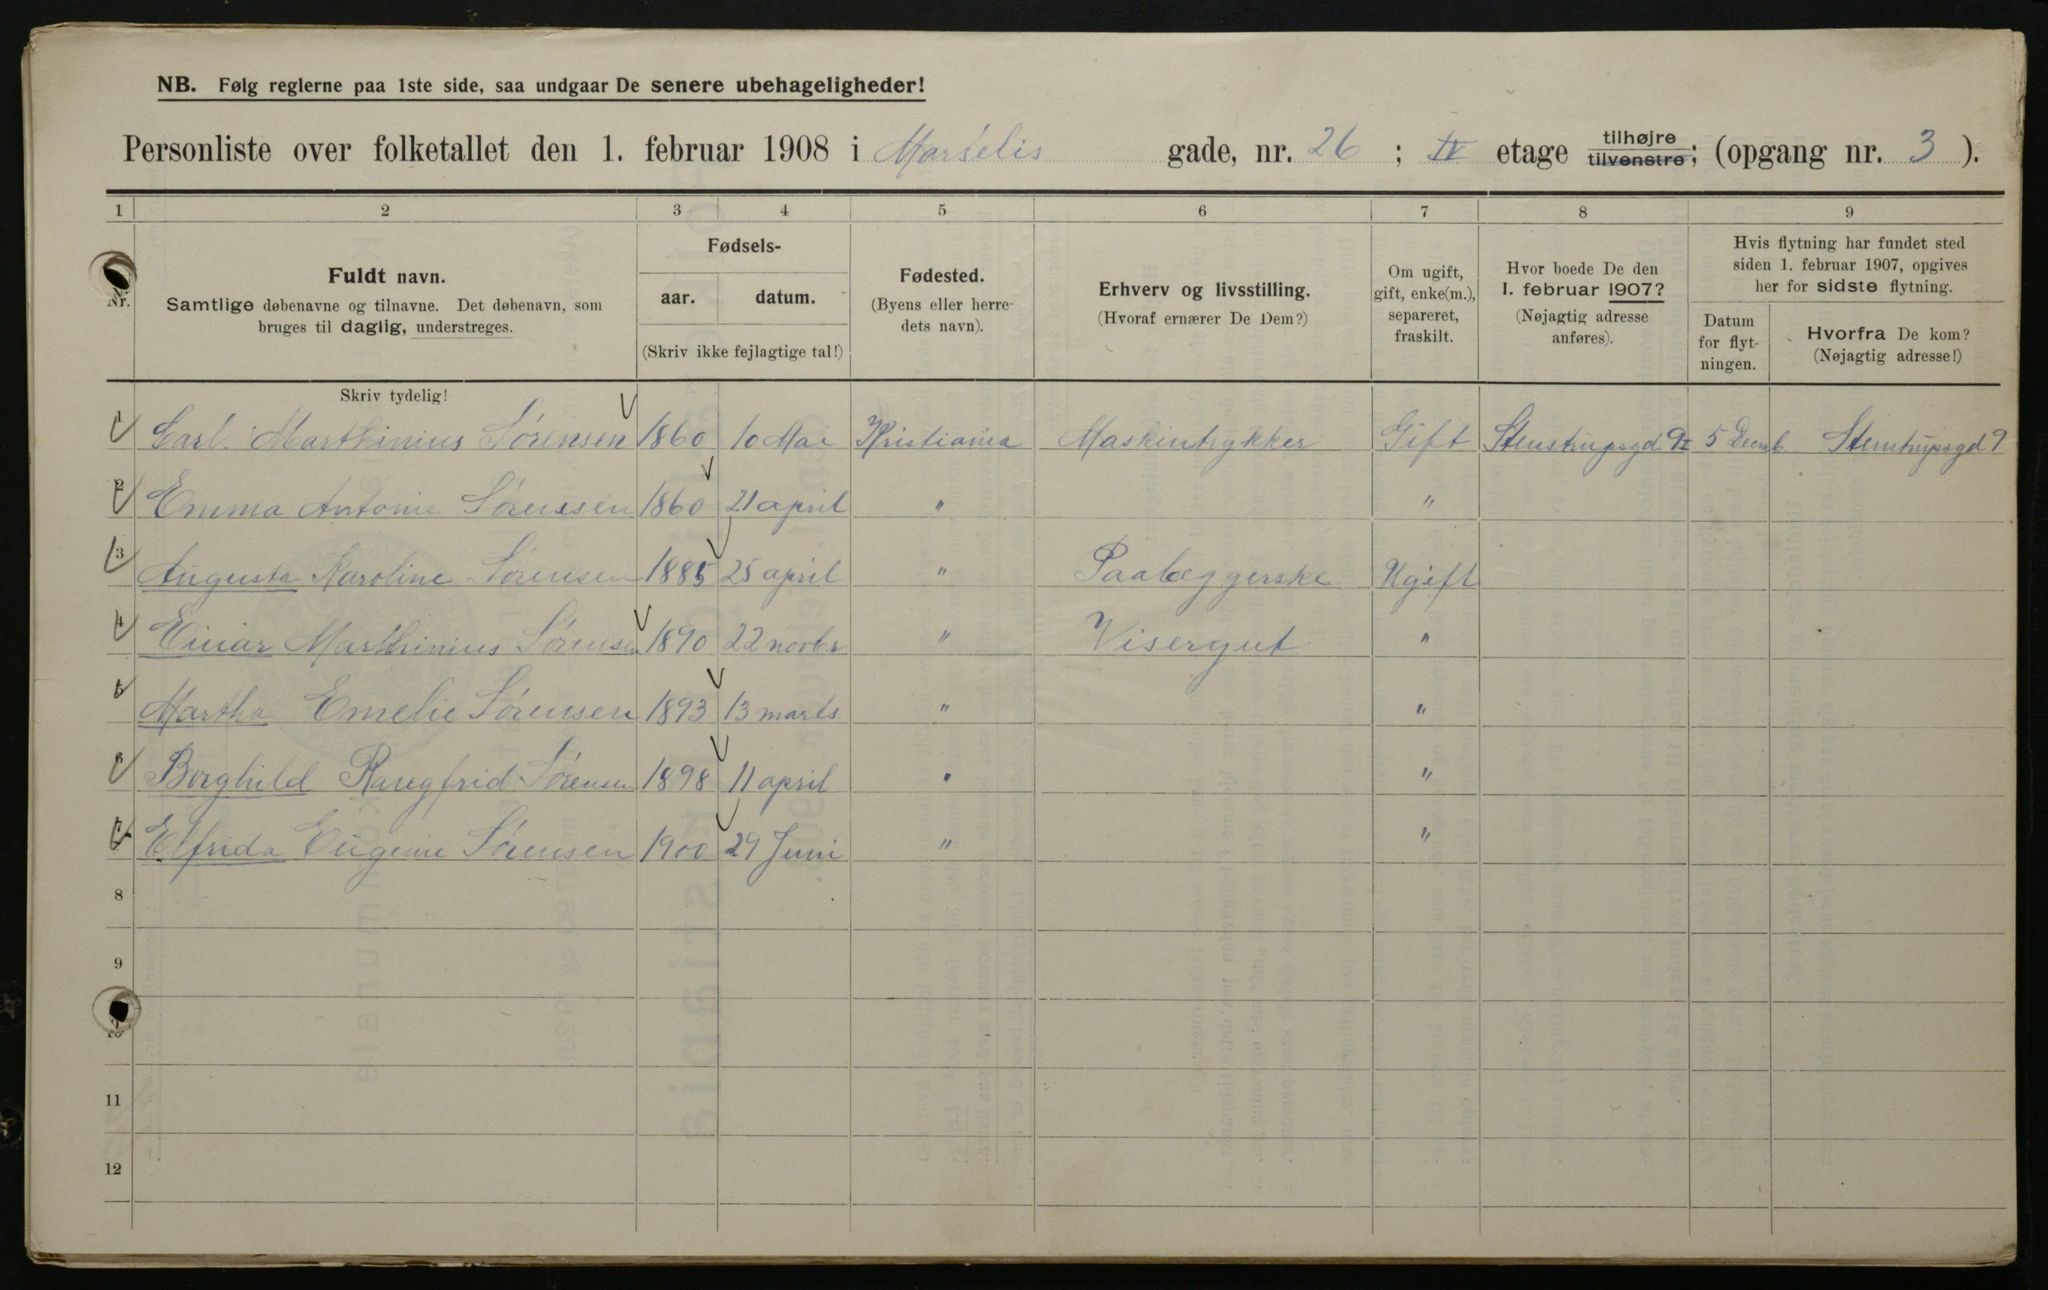 NB. Følg reglerne paa 1ste side, saa undgaar De senere ubehageligheder!
Personliste over folketallet den 1. februar 1908 i Marselis gade, nr. 26 ; IV etage tilhøjre tilvenstre; (opgang nr. 3 ).
1 2 3 4 5 6 7 8 9
Nr.
Fuldt navn.
Samtlige døbenavne og tilnavne. Det døbenavn, som
bruges til daglig, understreges.
Skriv tydelig!
Fødsels-
aar. datum.
(Skriv ikke fejlagtige tal!)
Fødested.
(Byens eller herre-
dets navn).
Erhverv og livsstilling.
(Hvoraf ernærer De Dem?)
Om ugift,
gift, enke(m.),
separeret,
fraskilt.
Hvor boede De den
1. februar 1907?
(Nøjagtig adresse
anføres).
Hvis flytning har fundet sted
siden 1. februar 1907, opgives
her for sidste flytning.
Datum
for flyt-
ningen.
Hvorfra De kom?
(Nøjagtig adresse!)
1 Carl Marthinius Sørensen 1860 10 Mai Kristiania Maskintrykker Gift Stenstrupsgd 9 II 5 Decmb. Stenstrupsgd 9
2 Emma Antonie Sørenssen 1860 21 april " "
3 Augusta Karoline Sørensen 1885 25 april " Paalæggerske Ugift
4 Einar Marthinius Sørensen 1890 22 novbr " Visergut "
5 Martha Emelie Sørensen 1893 13 marts. " "
6 Borghild Rangfrid Sørensen 1898 11 april " "
7 Elfrida Eugenie Sørensen 1900 29 Juni " "
8
9
10
11
12